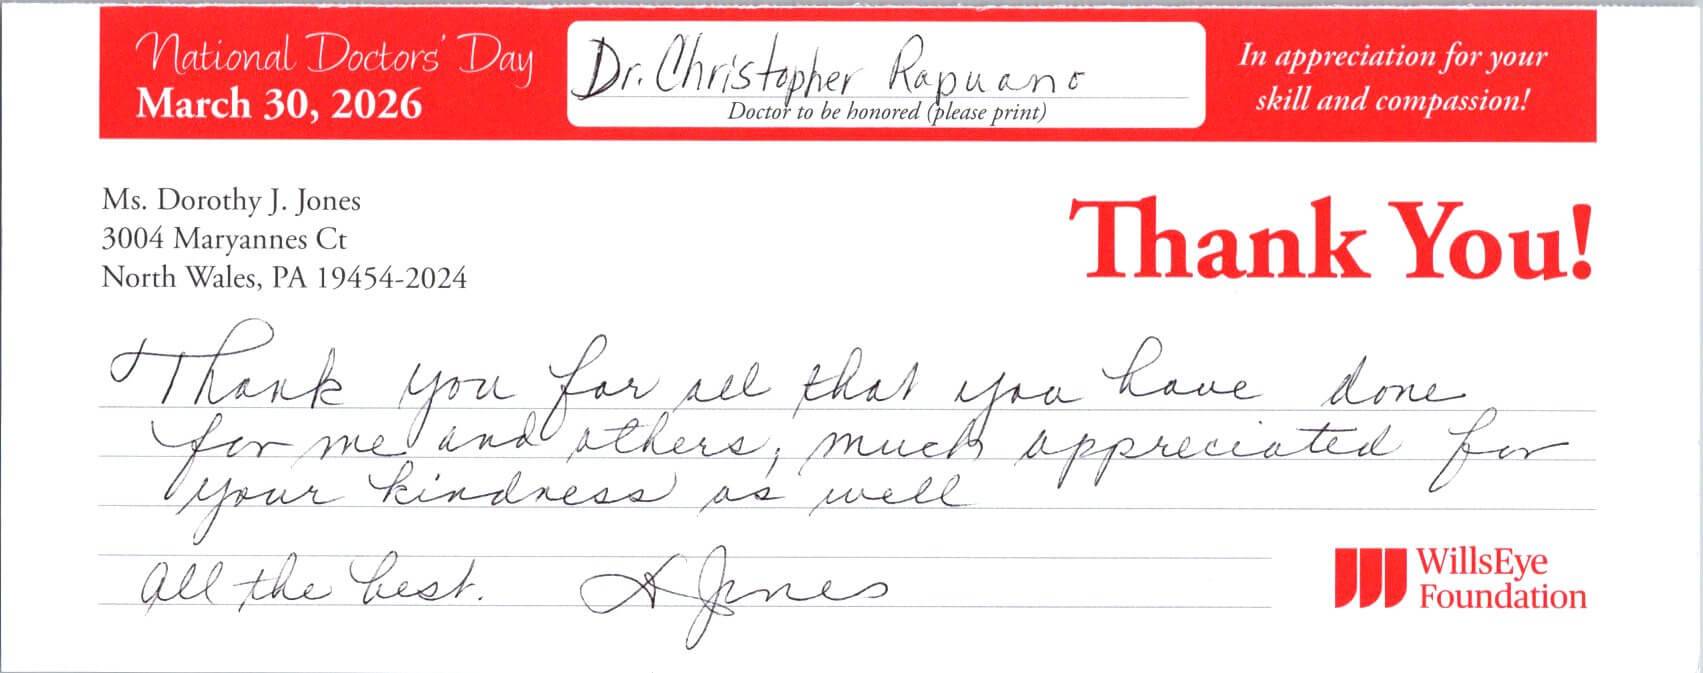 National Doctors' Day
March 30, 2026
Dr. Christopher Rapuano
Doctor to be honored (please print)
In appreciation for your
skill and compassion!
Ms. Dorothy J. Jones
3004 Maryannes Ct
North Wales, PA 19454-2024
Thank You!
Thank you for all that you have done
for me and others, much appreciated for
your kindness as well
All the best. D Jones
WillsEye
Foundation